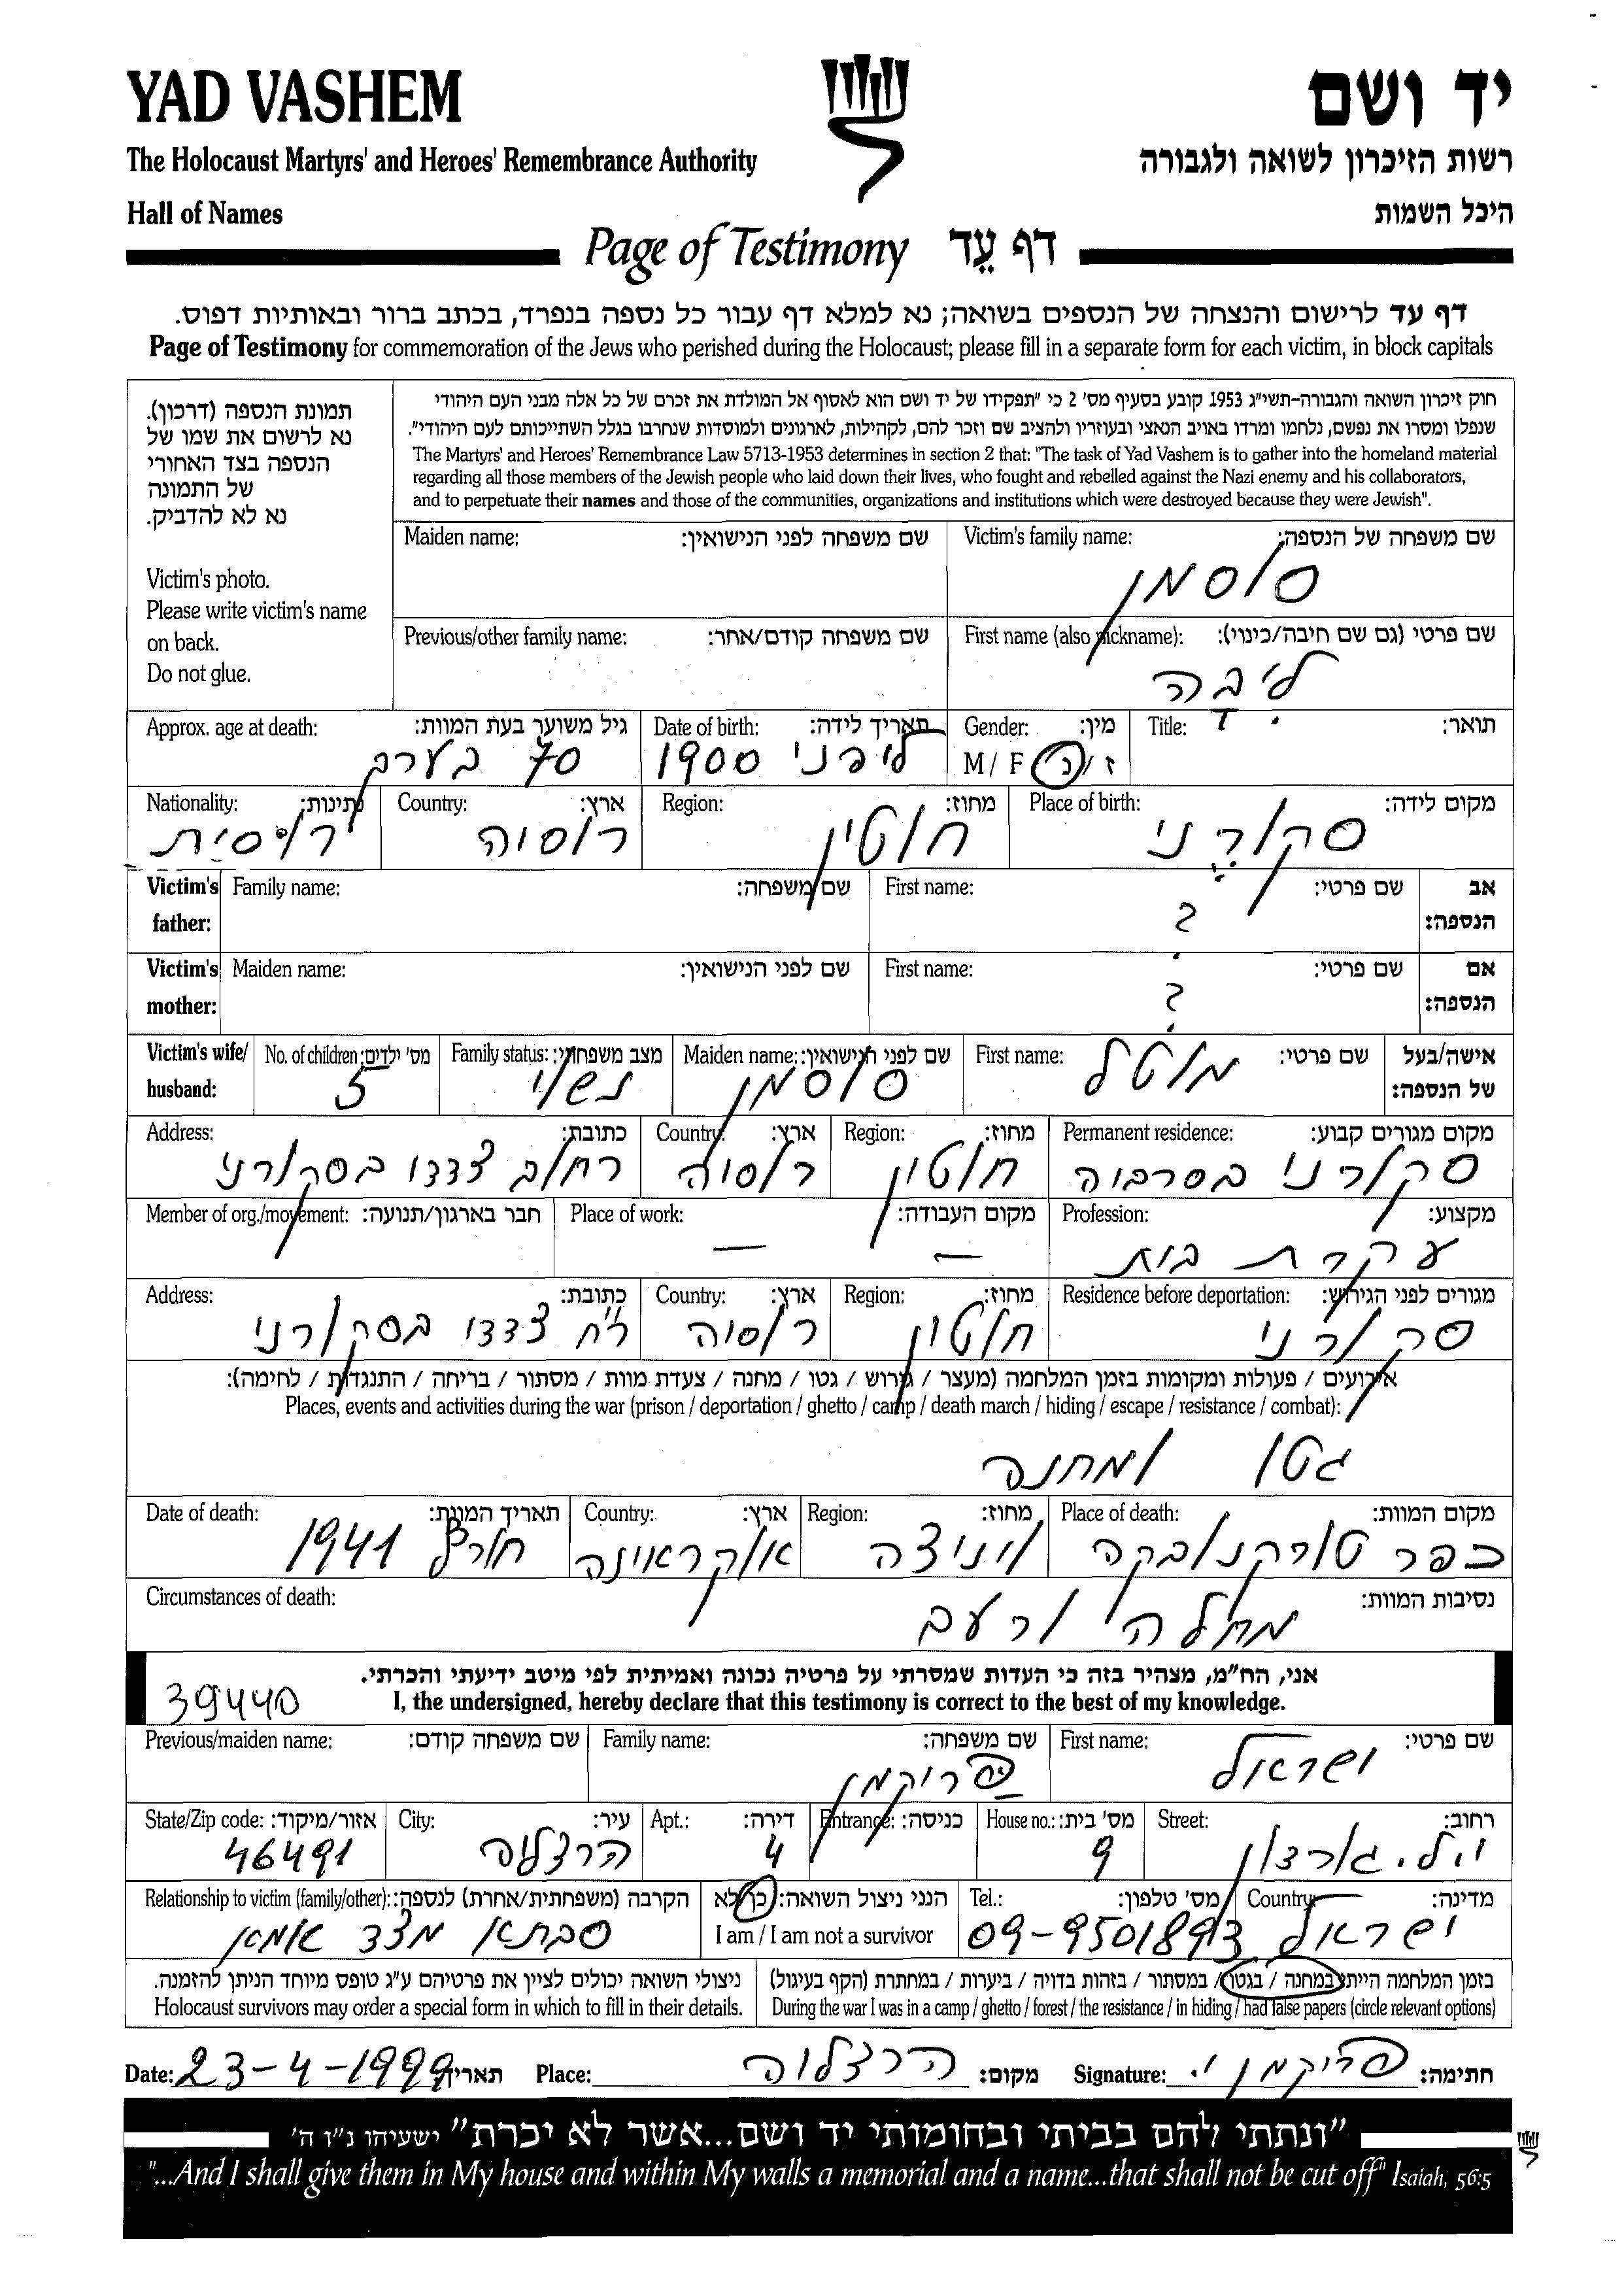 YAD VASHEM
יד ושם
The Holocaust Martyrs' and Heroes' Remembrance Authority
רשות הזיכרון לשואה ולגבורה
Hall of Names
היכל השמות
Page of Testimony דף עֵד
דף עד לרישום והנצחה של הנספים בשואה; נא למלא דף עבור כל נספה בנפרד, בכתב ברור ובאותיות דפוס.
Page of Testimony for commemoration of the Jews who perished during the Holocaust; please fill in a separate form for each victim, in block capitals
חוק זיכרון השואה והגבורה-תשי"ג 1953 קובע בסעיף מס' 2 כי "תפקידו של יד ושם הוא לאסוף אל המולדת את זכרם של כל אלה מבני העם היהודי
שנפלו ומסרו את נפשם, נלחמו ומרדו באויב הנאצי ובעוזריו ולהציב שם וזכר להם, לקהילות, לארגונים ולמוסדות שנחרבו בגלל השתייכותם לעם היהודי".
The Martyrs' and Heroes' Remembrance Law 5713-1953 determines in section 2 that: "The task of Yad Vashem is to gather into the homeland material
regarding all those members of the Jewish people who laid down their lives, who fought and rebelled against the Nazi enemy and his collaborators,
and to perpetuate their names and those of the communities, organizations and institutions which were destroyed because they were Jewish".
תמונת הנספה (דרכון).
נא לרשום את שמו של
הנספה בצד האחורי
של התמונה
נא לא להדביק.
Victim's photo.
Please write victim's name
on back.
Do not glue.
Victim's family name: שם משפחה של הנספה:
סוסמן
Maiden name: שם משפחה לפני הנישואין:
First name (also nickname): שם פרטי (גם שם חיבה/כינוי):
ליבה
Previous/other family name: שם משפחה קודם/אחר:
Title: תואר:
Gender: מין:
M / F ז / נ
Date of birth: תאריך לידה:
לפני 1900
Approx. age at death: גיל משוער בעת המוות:
70 בערב
Place of birth: מקום לידה:
סקורני
Region: מחוז:
חוטין
Country: ארץ:
רוסיה
Nationality: נתינות:
רוסית
Victim's father: אב הנספה:
First name: שם פרטי:
?
Family name: שם משפחה:
Victim's mother: אם הנספה:
First name: שם פרטי:
?
Maiden name: שם לפני הנישואין:
Victim's wife/ husband: אישה/בעל של הנספה:
First name: שם פרטי:
מוטל
Maiden name: שם לפני הנישואין:
סוסמן
Family status: מצב משפחתי:
נשוי
No. of children: מס' ילדים:
5
Permanent residence: מקום מגורים קבוע:
סקורני בסרביה
Region: מחוז:
חוטין
Country: ארץ:
רוסיה
Address: כתובת:
רחוב צדדי בסקורני
Profession: מקצוע:
עקרת בית
Place of work: מקום העבודה:
— —
Member of org./movement: חבר בארגון/תנועה:
Residence before deportation: מגורים לפני הגירוש:
סקורני
Region: מחוז:
חוטין
Country: ארץ:
רוסיה
Address: כתובת:
רח' צדדי בסקורני
אירועים / פעולות ומקומות בזמן המלחמה (מעצר / גירוש / גטו / מחנה / צעדת מוות / מסתור / בריחה / התנגדות / לחימה):
Places, events and activities during the war (prison / deportation / ghetto / camp / death march / hiding / escape / resistance / combat):
גטו ומחנה
Place of death: מקום המוות:
כפר
Region: מחוז:
Country: ארץ:
אוקראינה
Date of death: תאריך המוות:
חורף 1941
Circumstances of death: נסיבות המוות:
מחלה ורעב
אני, הח"מ, מצהיר בזה כי העדות שמסרתי על פרטיה נכונה ואמיתית לפי מיטב ידיעתי והכרתי.
39440
I, the undersigned, hereby declare that this testimony is correct to the best of my knowledge.
First name: שם פרטי:
ישראל
Family name: שם משפחה:
פרוקמן
Previous/maiden name: שם משפחה קודם:
Street: רחוב:
י.ל. גורדון
House no.: מס' בית:
9
Entrance: כניסה:
Apt.: דירה:
4
City: עיר:
הרצליה
State/Zip code: אזור/מיקוד:
46491
Country: מדינה:
ישראל
Tel.: מס' טלפון:
09-9501893
הנני ניצול השואה: כן/לא
I am / I am not a survivor
Relationship to victim (family/other): הקרבה (משפחתית/אחרת) לנספה:
סבתא מצד אמא
בזמן המלחמה הייתי במחנה / בגטו / במסתור / בזהות בדויה / ביערות / במחתרת (הקף בעיגול)
During the war I was in a camp / ghetto / forest / the resistance / in hiding / had false papers (circle relevant options)
ניצולי השואה יכולים לציין את פרטיהם ע"ג טופס מיוחד הניתן להזמנה.
Holocaust survivors may order a special form in which to fill in their details.
Date: 23-4-1999 תאריך
Place: הרצליה מקום:
Signature: פרוקמן י. חתימה:
"ונתתי להם בביתי ובחומותי יד ושם...אשר לא יכרת" ישעיהו נ"ו ה'
"...And I shall give them in My house and within My walls a memorial and a name...that shall not be cut off" Isaiah, 56:5